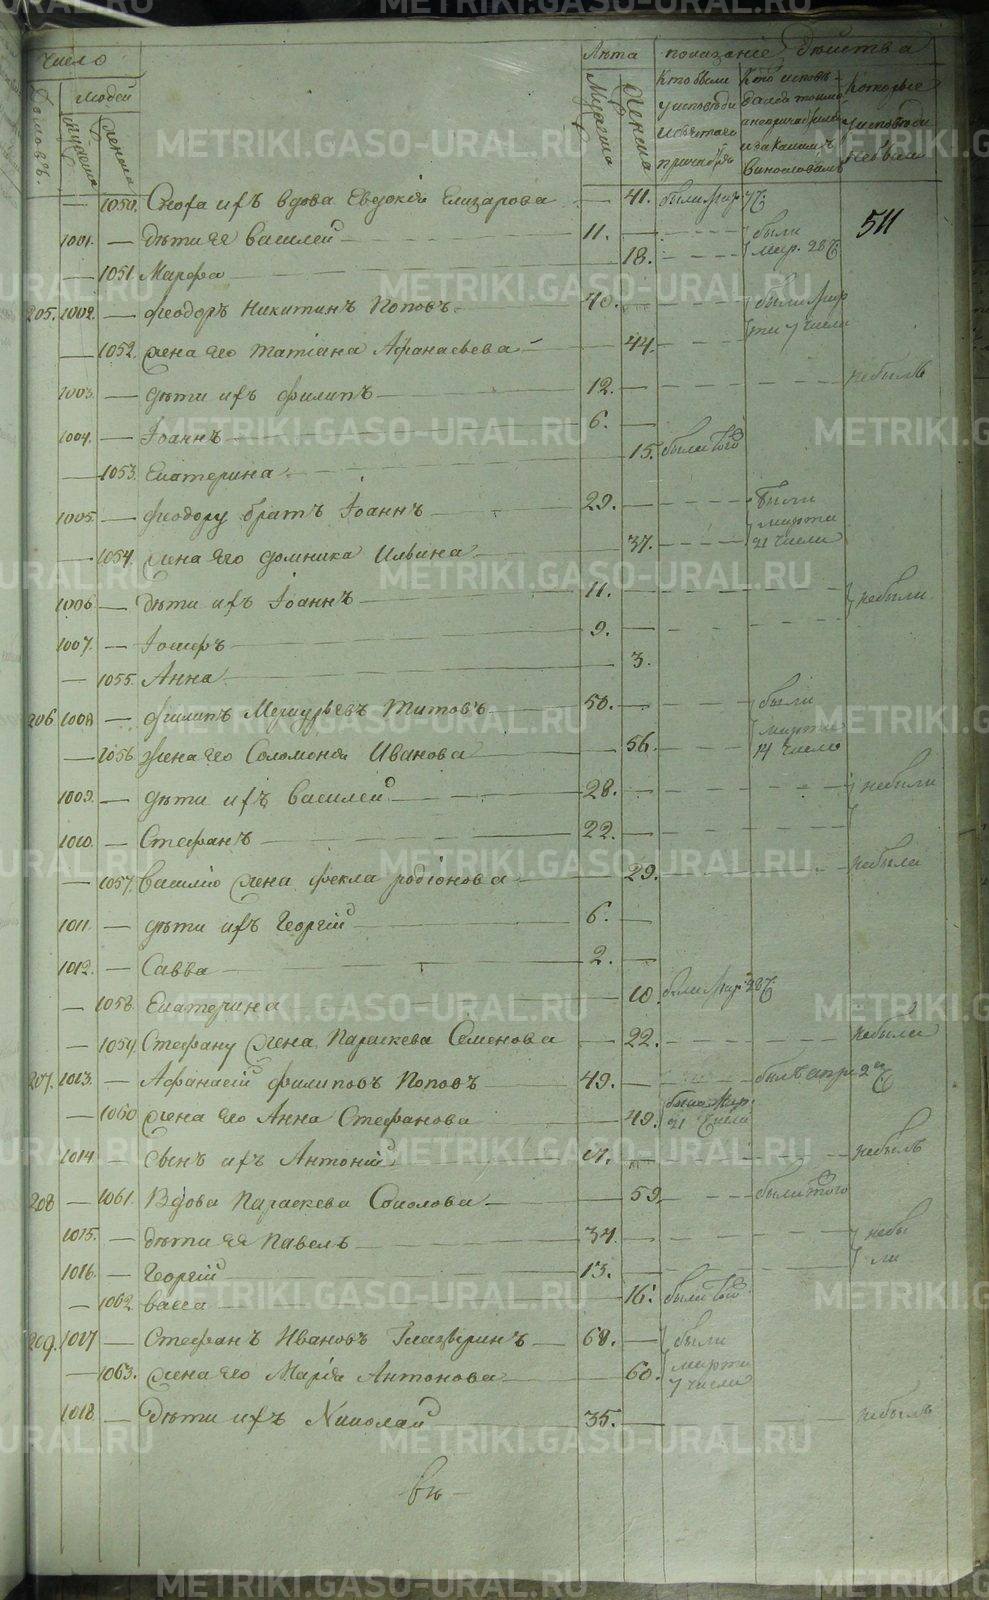 METRIKI.GASO-URAL.RU
Число
Лѣта
показаніе дѣйства
Домовъ.
Людей
Мужеска
Женска
Мужеска
Женска
Кто были у исповѣди и святаго причастія
Которые у исповѣди не были
511
— 1050. Сноха ихъ вдова Евдокія Елизарова — 41. были мар 7 Ч
1001. — дѣти ея Василей — 11. — были
— 1051 Марфа — 18. мар. 28 Ч
205. 1002. — Феодоръ Никитинъ Поповъ — 40. были мар
— 1052. жена его Татіана Афанасьева — 44. ти 7 числа
1003. — дѣти ихъ Филипъ — 12. — небылъ
1004. — Іоаннъ — 6. —
— 1053. Екатерина — 15. были
1005. — Феодору братъ Іоаннъ — 29. — были марта
— 1054. жена его Домника Ильина — 37. 21 числа
1006. — дѣти ихъ Іоаннъ — 11. — небыли
1007. — Іосифъ — 9. —
— 1055. Анна — 3.
206 1008. — Филипъ Титовъ — 50. — были марта
— 1056 жена его Соломонія Иванова — 56. 14 число
1009. — дѣти ихъ Василей — 28. — небыли
1010. — Стефанъ — 22. —
— 1057. Василію жена Фекла Родіонова — 29. небыла
1011. — дѣти ихъ Георгій — 6. —
1012. — Савва — 2. —
— 1058. Екатерина — 10. были мар 28 Ч
— 1059. Стефану жена Параскева Семенова — 22. — небыла
207. 1013. — Афанасій Филиповъ Поповъ — 49. — былъ апре 2 Ч
— 1060 жена его Анна Стефанова — 49. была мар 21 числа
1014. — сынъ ихъ Антоній — небылъ
208 — 1061. Вдова Параскева — 59.
1015. — дѣти ея Павелъ — 34. — небы
1016. — Георгій — 13. — ли
— 1062. Васса — 16. были
209. 1017 — Стефанъ Ивановъ — 68. — были
— 1063. жена его Марія Антонова — 60. марта 7 числа
1018. — дѣти ихъ Николай — 35. — небылъ